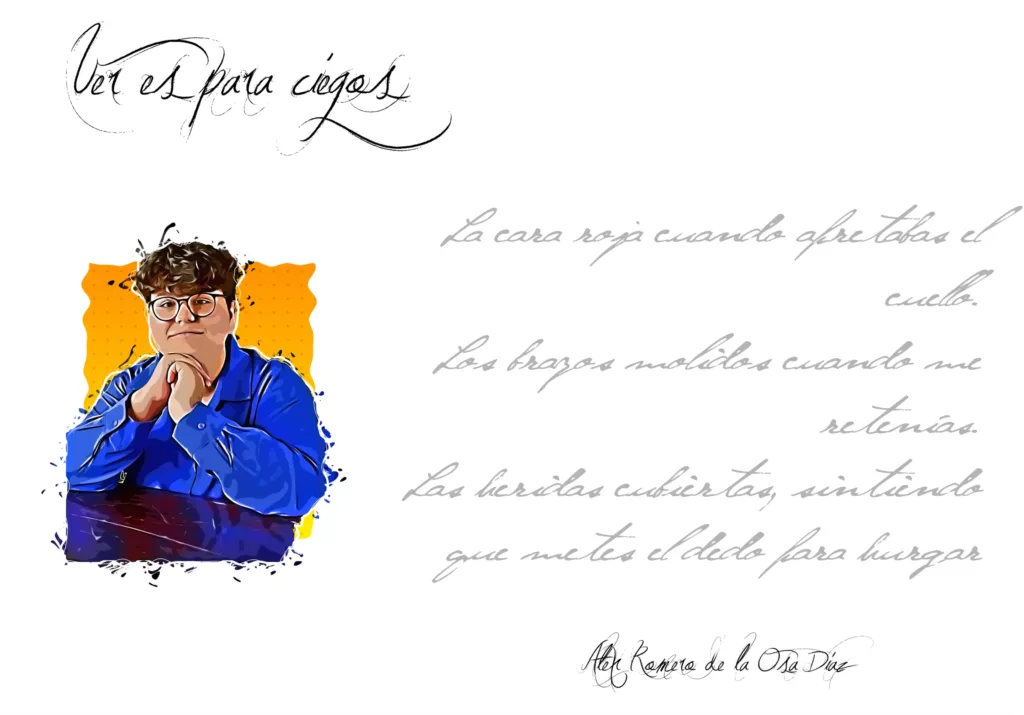 Ver es para ciegos
La cara roja cuando apretabas el
cuello.
Los brazos molidos cuando me
retenías.
Las heridas cubiertas, sintiendo
que metes el dedo para hurgar
Alex Romero de la Osa Díaz